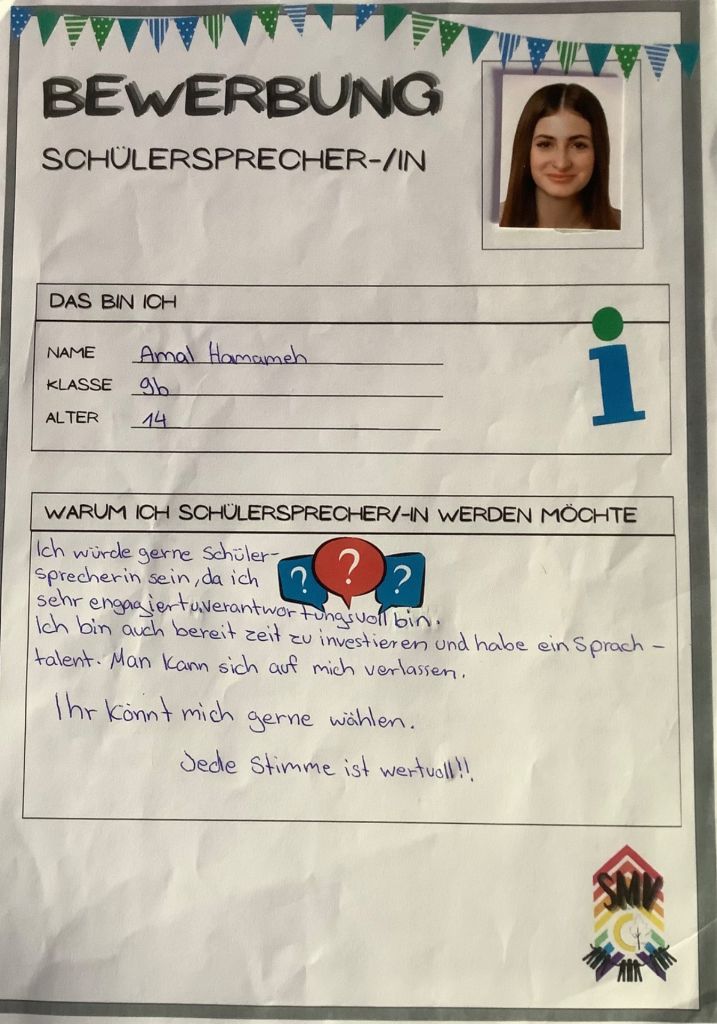 BEWERBUNG
SCHÜLERSPRECHER-/IN
DAS BIN ICH
NAME Amal Hamameh
KLASSE 9b
ALTER 14
WARUM ICH SCHÜLERSPRECHER/-IN WERDEN MÖCHTE
Ich würde gerne Schüler-
sprecherin sein, da ich
sehr engagiert u. verantwortungsvoll bin.
Ich bin auch bereit zeit zu investieren und habe ein Sprach-
talent. Man kann sich auf mich verlassen.
Ihr könnt mich gerne wählen.
Jede Stimme ist wertvoll!!
? ? ?
SMV